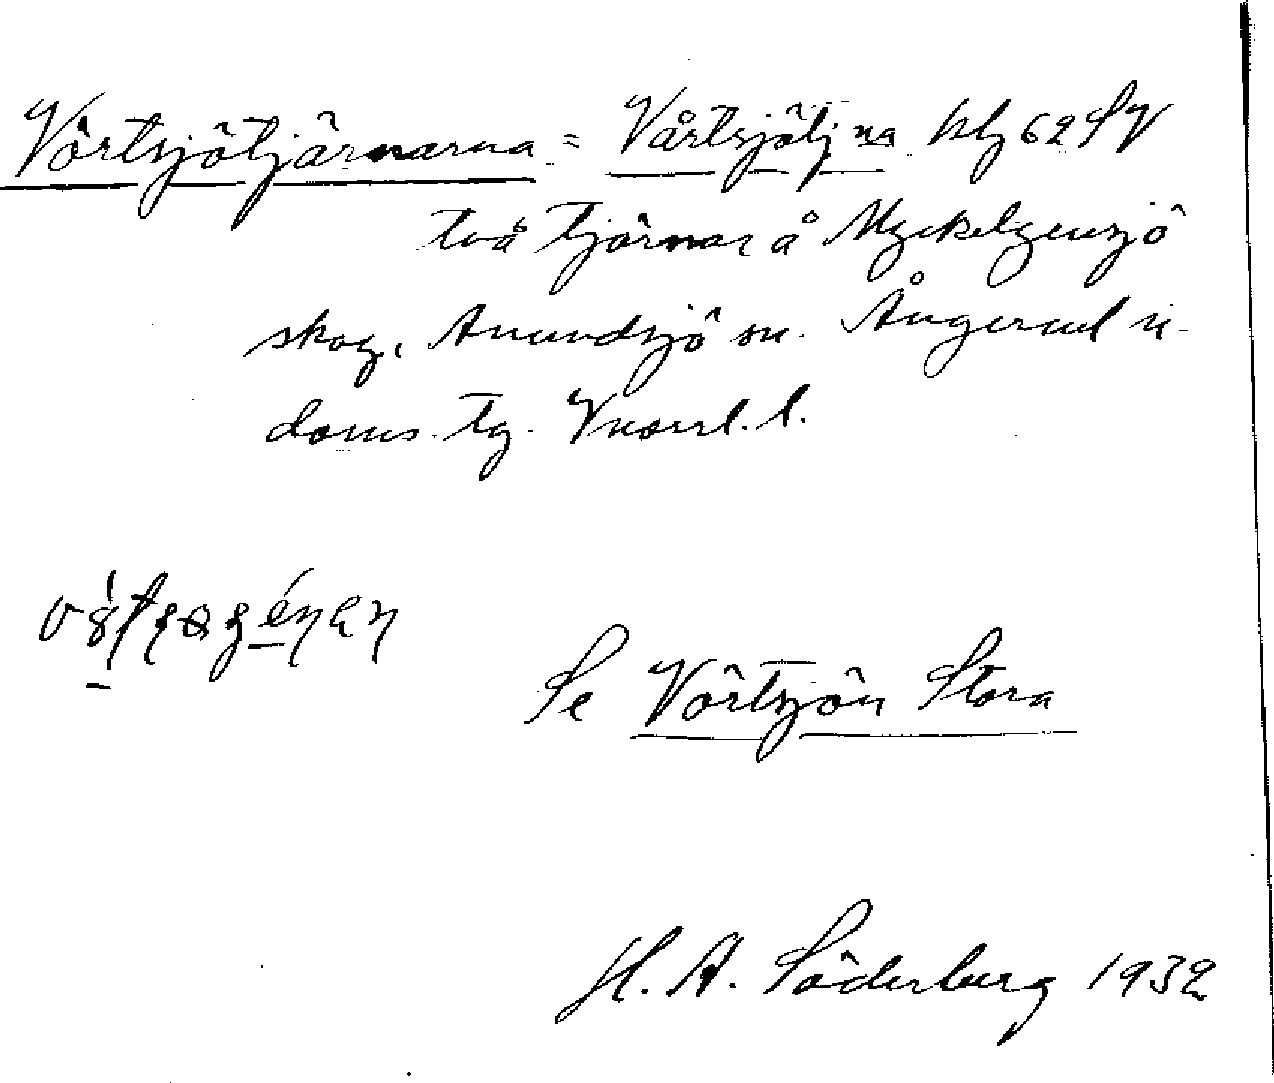 Vörtsjötjärnarna = Vårtsjötj:na blg 62 SV
två tjärnar å Myckelgensjö
skog, Anundsjö sn. Ångerml n-
doms. tg. Vnorrl. l.
Se Vörtsjön Stora
H. A. Söderberg 1932